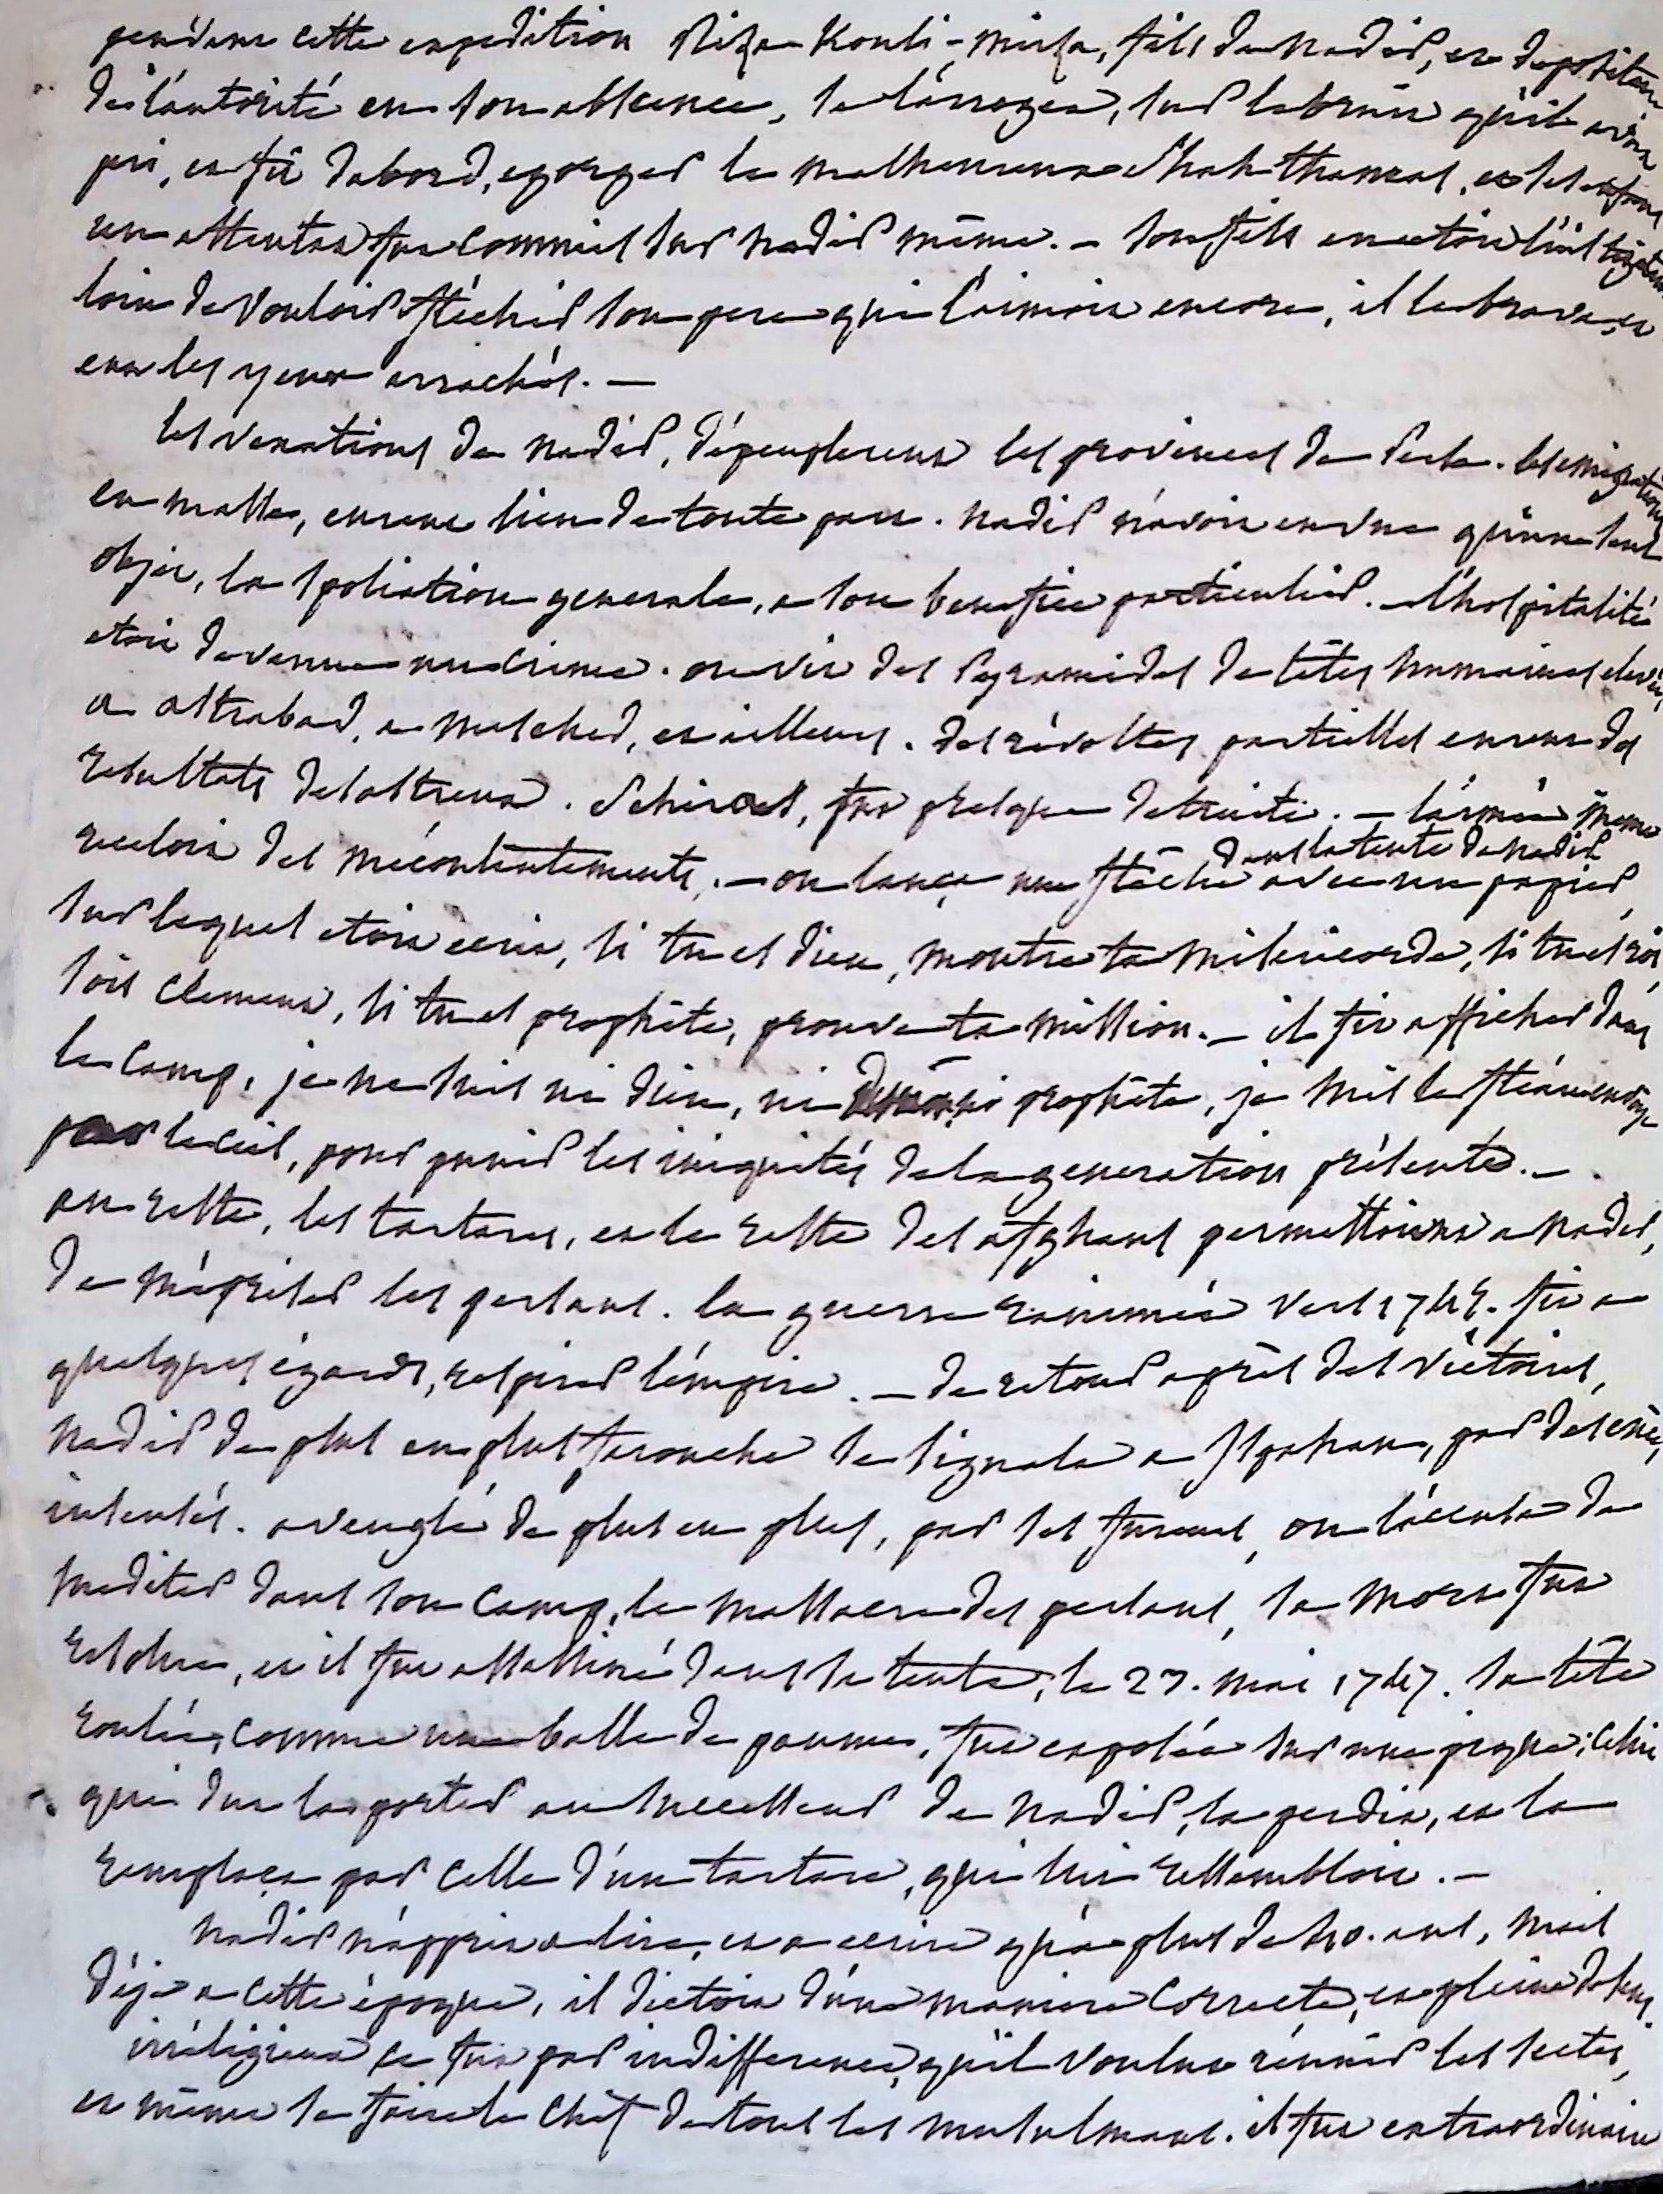 pendant cette expedition Riza-Kouli-mirza, fils de nadir, et depositaire
de l'autorité en son absence, se l'arrogea, sur le bruit qu'il avoit
peri, et fit d'abord, egorger le malheureux Shah-thamas, et ses enfans
un attentat fut commis sur nadir même. – son fils en etoit l'instigateur
loin de vouloir fléchir son pere qui l'aimoit encore, il le brava, et
eut les yeux arrachés. –
les vexations de nadir, dépeuplerent les provinces de Perse. les emigrations
en masse, eurent lieu de toute part. nadir n'avoit en vue qu'un seul
objet, la spoliation generale, a son benefice particulier. – l'hospitalité
etoit devenue un crime. on vit des Pyramides de têtes humaines elevées,
a astrabad, a mesched, et ailleurs. des révoltes partielles eurent des
resultats desastreux. Schiras, fut presque detruite. – l'armée même
receloit des mécontentements. – on lança une flêche dans la tente de nadir avec un papier,
sur lequel etoit ecrit, si tu es dieu, montre ta misericorde, si tu es roi
sois clement, si tu es prophête, prouve ta mission. – il fit afficher dans
le camp, je ne suis ni dieu, ni prophête, je suis le fléau envoyé
par le ciel, pour punir les iniquités de la generation présente. –
au reste, les tartares, et le reste des afghans permettoient a nadir,
de mépriser les persans. la guerre ranimée vers 1745. fit a
quelques égards, respirer l'empire. – de retour après des victoires,
nadir de plus en plus farouche se signala a Ispahan, par des cruautés
insensées. aveuglé de plus en plus, par ses fureurs, on l'accusa de
mediter dans son camp, le massacre des persans, sa mort fut
resolue, et il fut assassiné dans sa tente, le 27. mai 1747. sa tête
roulée, comme une balle de paume, fut exposée sur une pique; celui
qui dut la porter au successeur de nadir, la perdit, et la
remplaça par celle d'un tartare, qui lui ressembloit. –
nadir n'apprit a lire, et a ecrire qu'a plus de 40. ans, mais
déja a cette époque, il dictoit d'une maniere correcte, et pleine de sens.
irréligieux ce fut par indifference, qu'il voulut réunir les sectes,
et même se faire le chef de tous les musulmans. il fut extraordinaire